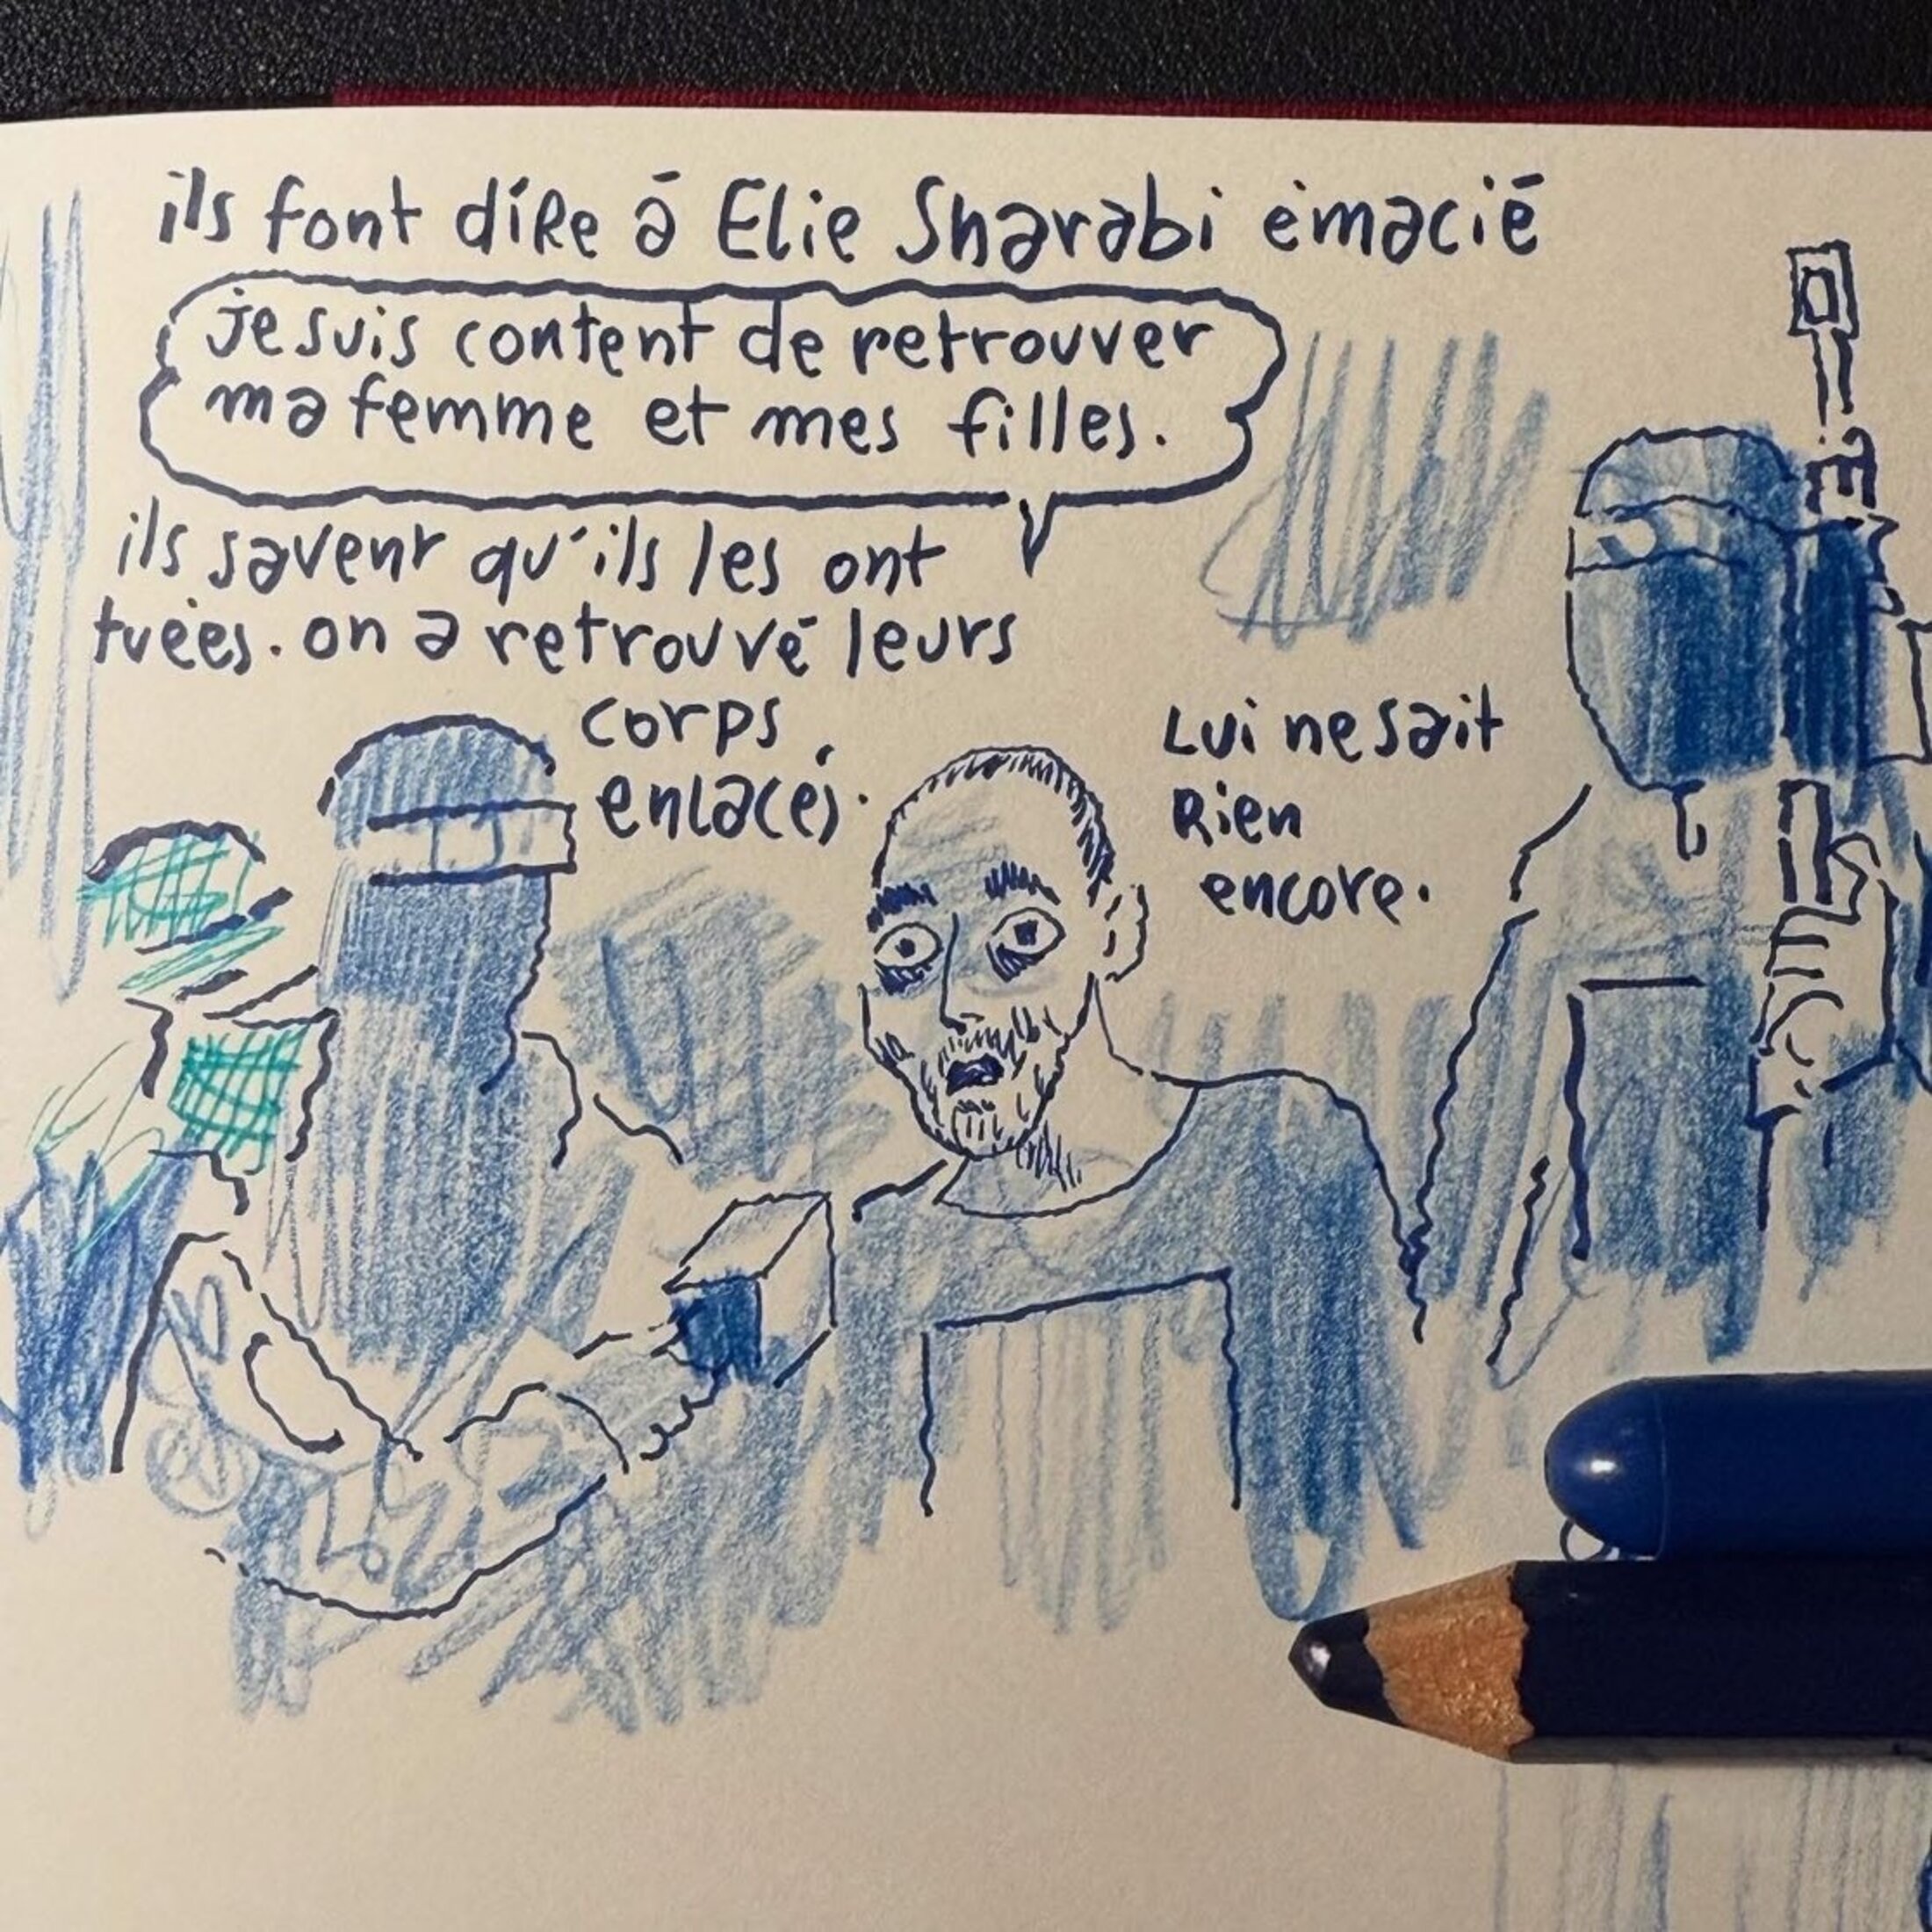 ils font dire à Elie Sharabi émacié
je suis content de retrouver
ma femme et mes filles.
ils savent qu'ils les ont
tuées. on a retrouvé leurs
corps
enlacés.
Lui ne sait
Rien
encore.